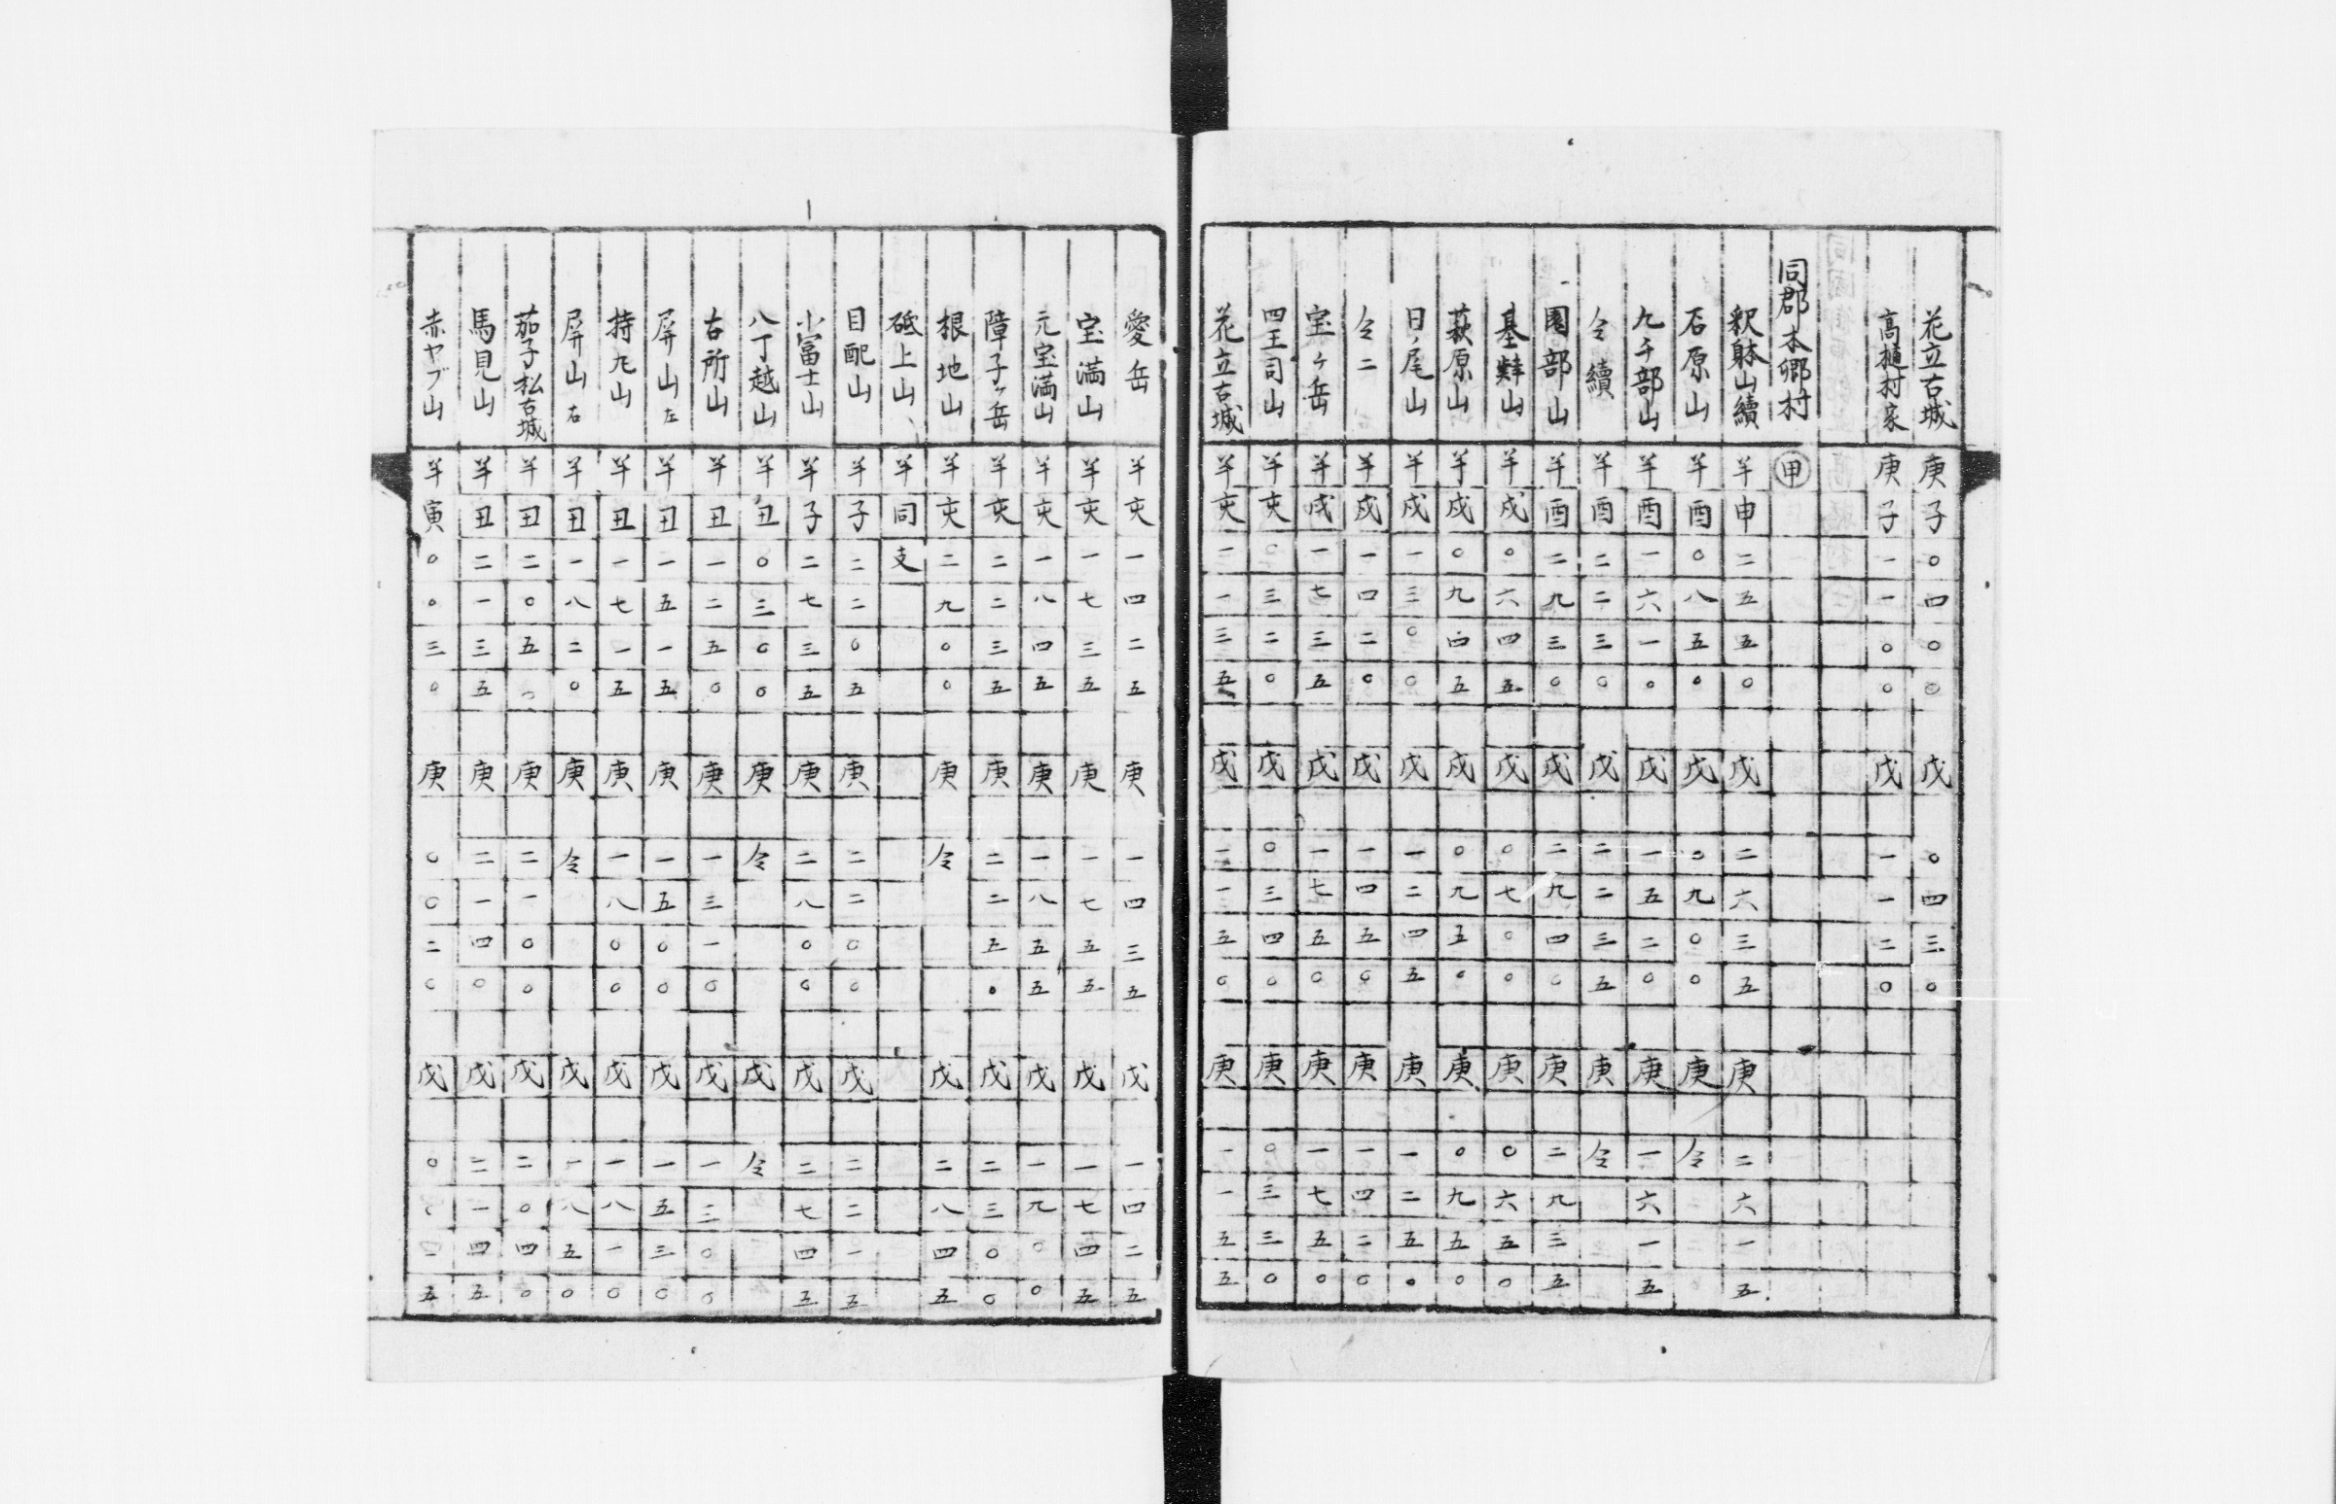 花立古城 庚子〇四〇〇 戊〇四三〇
高樋村家 庚子一一〇〇 戊一一二〇
同郡本郷村 甲
釈躰山續 羊申二五五〇 戊二六三五 庚二六一五
石原山 羊酉〇八五〇 戊〇九〇〇 庚仝
九千部山 羊酉一六一〇 戊一五二〇 庚一六一五
仝續 羊酉二二三〇 戊二二三五 庚仝
園部山 羊酉二九三〇 戊二九四〇 庚二九三五
基肄山 羊戌〇六四五 戊〇七〇〇 庚〇六五〇
萩原山 羊戌〇九四五 戊〇九五〇 庚〇九五〇
日ノ尾山 羊戌一三〇〇 戊一二四五 庚一二五〇
仝二 羊戌一四二〇 戊一四五〇 庚一四二〇
宝ヶ岳 羊戌一七三五 戊一七五〇 庚一七五〇
四王司山 羊亥〇三二〇 戊〇三四〇 庚〇三三〇
花立古城 羊亥一一三五 戊一一五〇 庚一一五五
愛岳 羊亥一四二五 庚一四三五 戊一四二五
宝満山 羊亥一七三五 庚一七五五 戊一七四五
元宝満山 羊亥一八四五 庚一八五五 戊一九〇〇
障子ヶ岳 羊亥二二三五 庚二二五〇 戊二三〇〇
根地山 羊亥二九〇〇 庚仝 戊二八四五
砥上山 羊同支
目配山 羊子二二〇五 庚二二〇〇 戊二二一五
小冨士山 羊子二七三五 庚二八〇〇 戊二七四五
八丁越山 羊丑〇三〇〇 庚仝 戊仝
古所山 羊丑一二五〇 庚一三一〇 戊一三〇〇
屏山左 羊丑一五一五 庚一五〇〇 戊一五三〇
持丸山 羊丑一七一五 庚一八〇〇 戊一八一〇
屏山右 羊丑一八二〇 庚仝 戊一八五〇
茄子松古城 羊丑二〇五〇 庚二一〇〇 戊二〇四〇
馬見山 羊丑二一三五 庚二一四〇 戊二一四五
赤ヤブ山 羊寅〇〇三〇 庚〇〇二〇 戊〇 五